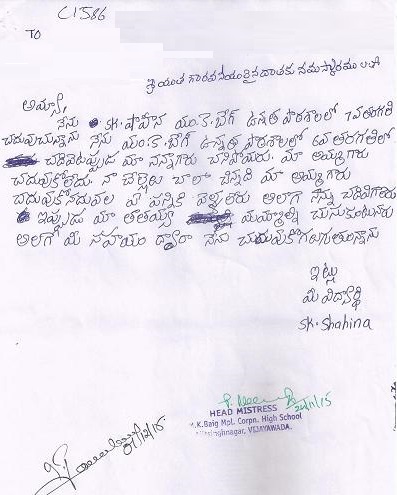 C1586
TO
శ్రీయుత గౌరవనీయులైన దాతకు నమస్కారములతో
అయ్యా,
నేను SK. షాహీన యం.కె.బేగ్ ఉన్నత పాఠశాలలో తరగతి
చదువుచున్నాను నేను యం.కె.బేగ్ ఉన్నత పాఠశాలలో 6వ తరగతిలో
చదివేటప్పుడు మా నాన్నగారు చనిపోయరు. మా అమ్మగారు
చదువుకోలేదు. నా చెల్లెలు చాలా చిన్నది మా అమ్మగారు
చదువుకోనందువల్ల ఏ పనికి వెళ్ళలేరు అలాగే నన్ను
ఇప్పుడు మా తాతయ్య మమ్మల్ని చూసుకుంటునారు
అలాగే మీ సహయం ద్వారా నేను చదువుకోగలుగుతున్నాను
ఇట్లు
మీ విద్యార్థి
SK. Shahina
24/11/15
HEAD MISTRESS
M.K.Baig Mpl. Corpn. High School
VIJAYAWADA.